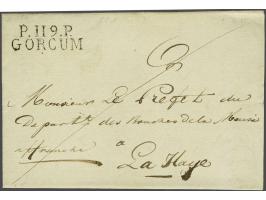 P.119.P.
GORCUM
Monsieur Le Prefet du
Departt. des Bouches de la Meuse
affranchie à
La Haye